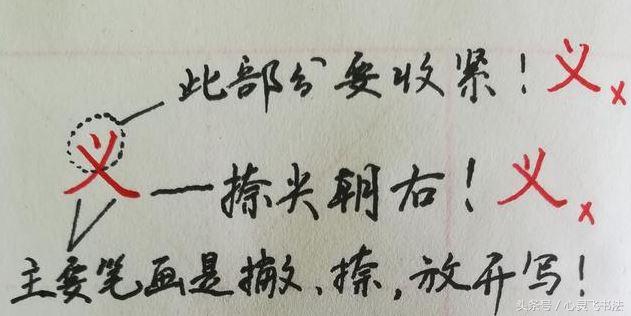 此部分要收紧！义×
义
捺尖朝右！义×
主要笔画是撇、捺，放开写！
头条号／心灵飞书法